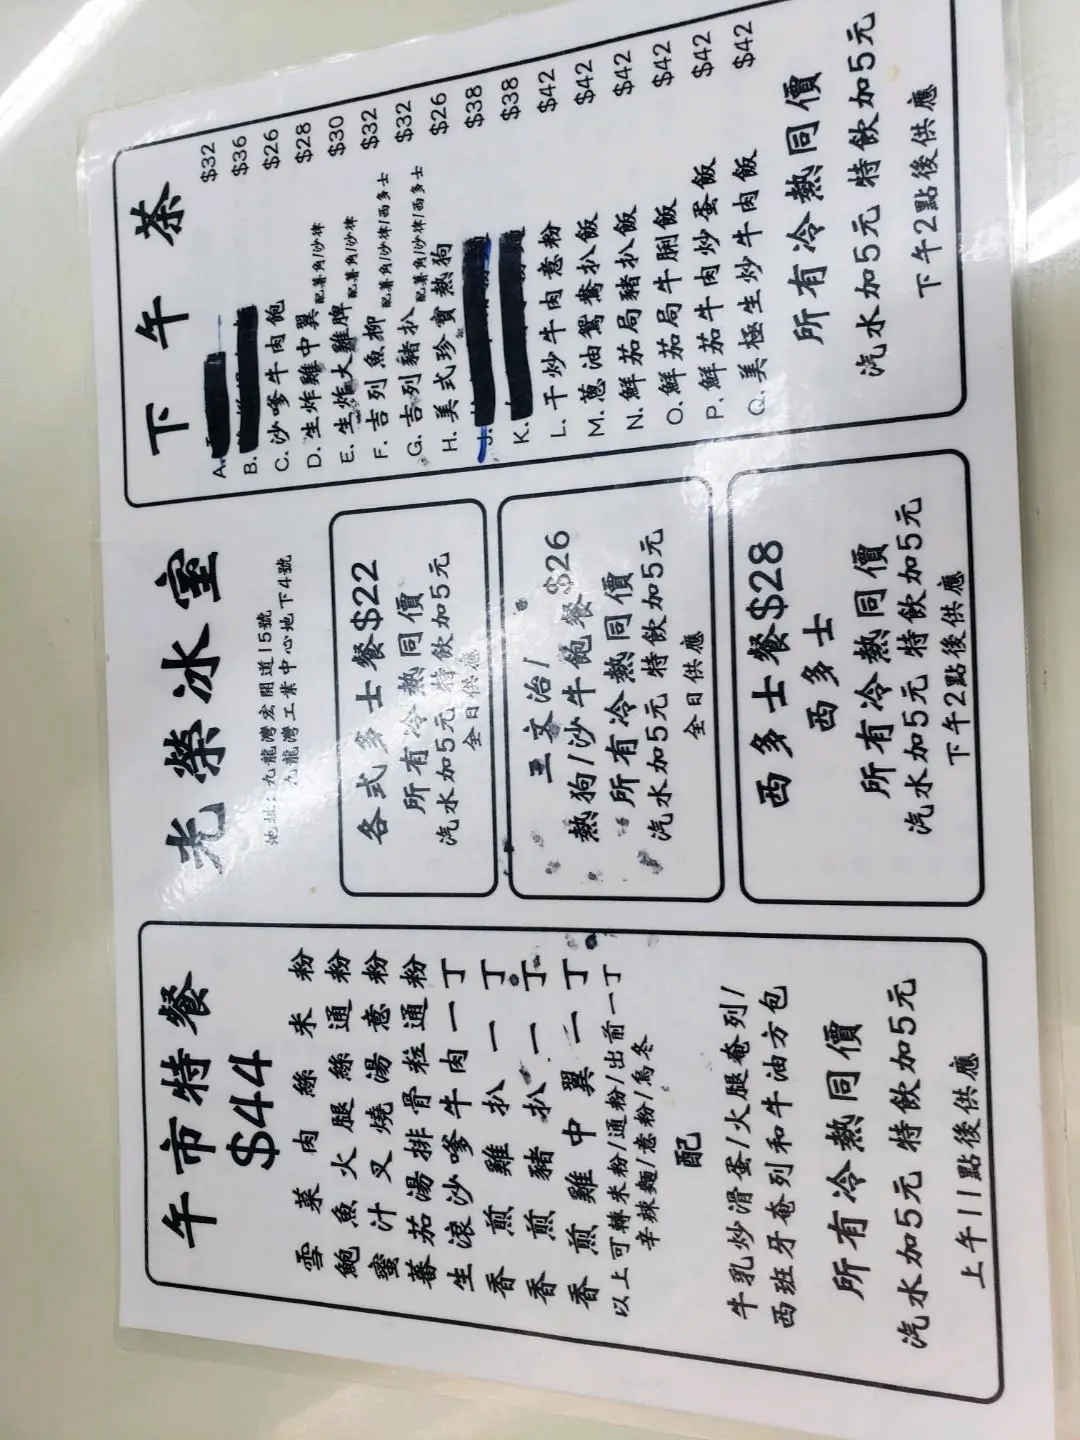 午市特餐
$44
雪菜肉絲米粉
鮑魚火腿絲通粉
蜜汁叉燒湯意粉
蕃茄湯排骨粒通粉
生滾沙爹牛肉一丁
香煎雞扒一丁
香煎豬扒一丁
香煎雞中翼一丁
以上可轉米粉/通粉/出前一丁
辛辣麵/意粉/烏冬
配
牛乳炒滑蛋/火腿奄列/
西班牙奄列和牛油方包
所有冷熱同價
汽水加5元 特飲加5元
上午11點後供應
光榮冰室
地址:九龍灣宏開道15號
九龍灣工業中心地下4號
各式多士餐$22
所有冷熱同價
汽水加5元 特飲加5元
全日供應
三文治/
熱狗/沙牛飽餐 $26
所有冷熱同價
汽水加5元 特飲加5元
全日供應
西多士餐$28
西多士
所有冷熱同價
汽水加5元 特飲加5元
下午2點後供應
下午茶
A. $32
B. $36
C. 沙爹牛肉飽 $26
D. 生炸雞中翼 配薯角/沙律 $28
E. 生炸大雞脾 配薯角/沙律 $30
F. 吉列魚柳 配薯角/沙律/西多士 $32
G. 吉列豬扒 配薯角/沙律/西多士 $32
H. 美式珍寶熱狗 $26
J. $38
K. $38
L. 干炒牛肉意粉 $42
M. 蔥油鴛鴦扒飯 $42
N. 鮮茄局豬扒飯 $42
O. 鮮茄局牛脷飯 $42
P. 鮮茄牛肉炒蛋飯 $42
Q. 美極生炒牛肉飯 $42
所有冷熱同價
汽水加5元 特飲加5元
下午2點後供應